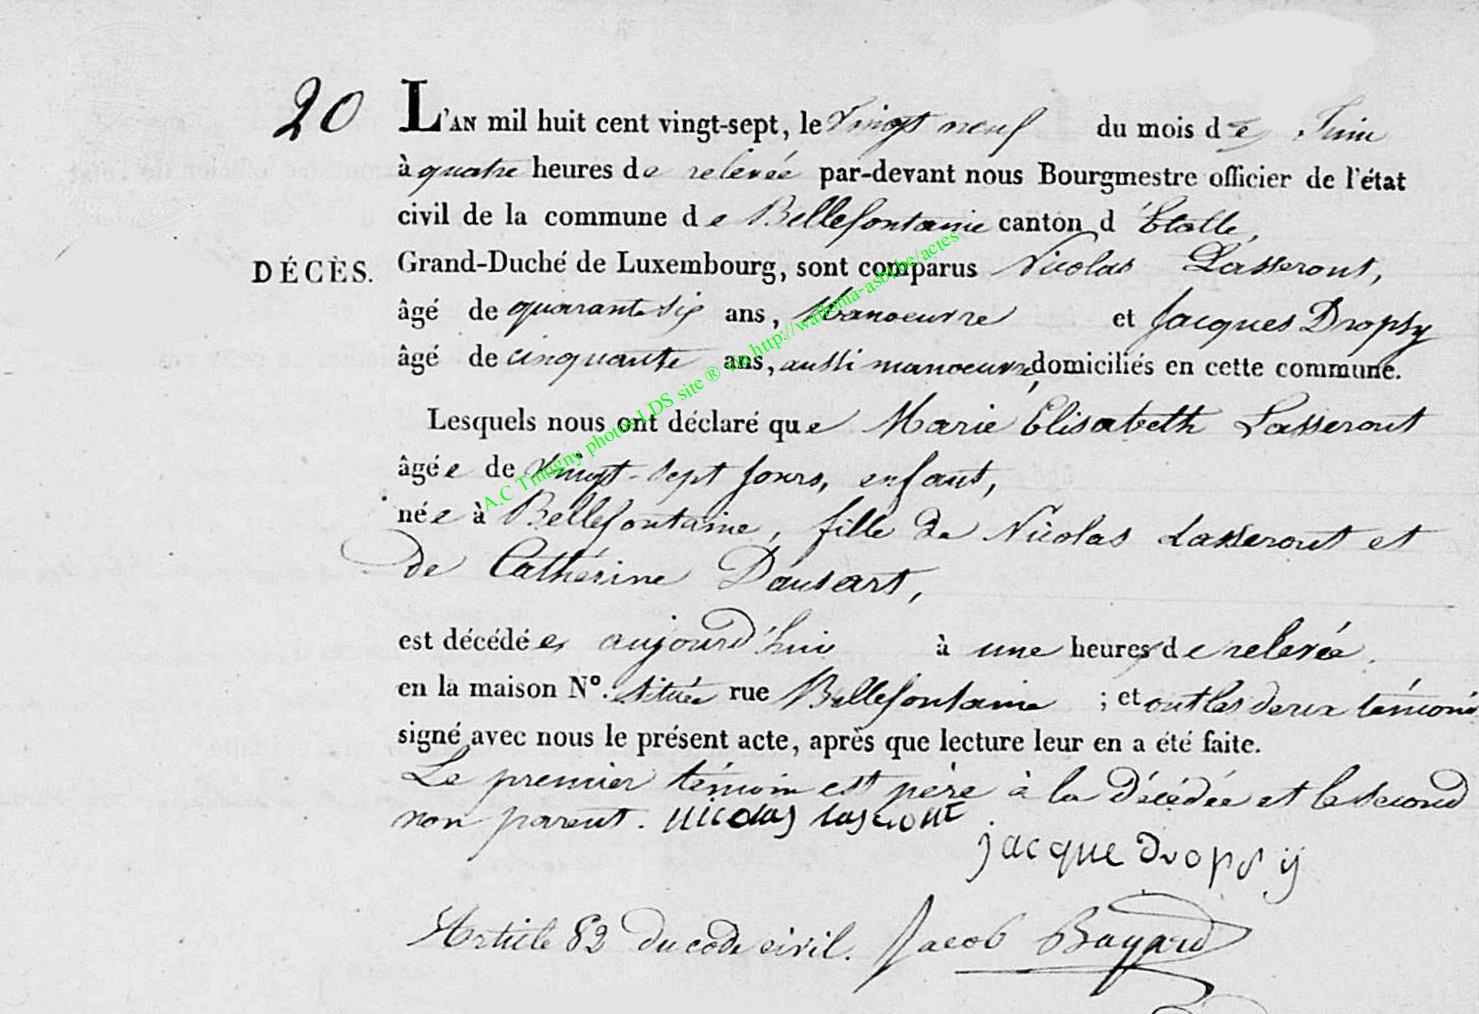 20 L'AN mil huit cent vingt-sept, le Vingt neuf du mois de Juin
à quatre heures de relevée par-devant nous Bourgmestre officier de l'état
civil de la commune de Bellefontaine canton d'Etalle,
DÉCÈS. Grand-Duché de Luxembourg, sont comparus Nicolas Lasseront,
âgé de quarante six ans, Manoeuvre et Jacques Dropsy
âgé de cinquante ans, aussi manoeuvre, domiciliés en cette commune.
Lesquels nous ont déclaré que Marie Elisabeth Lasseront
âgée de Vingt-sept jours, enfant,
née à Bellefontaine, fille de Nicolas Lasseront et
de Cathérine Dausart,
est décédée aujourd'hui à une heure de relevée.
en la maison N°. située rue Bellefontaine ; et ont les deux témoins
signé avec nous le présent acte, après que lecture leur en a été faite.
Le premier témoin est père à la Décédée et le second
non parent. nicolas lasront
jacque dropsy
Article 82 du code civil. Jacob Bayard
A.C Tintigny photos LDS site ® via http://wallonia-asbl.be/actes